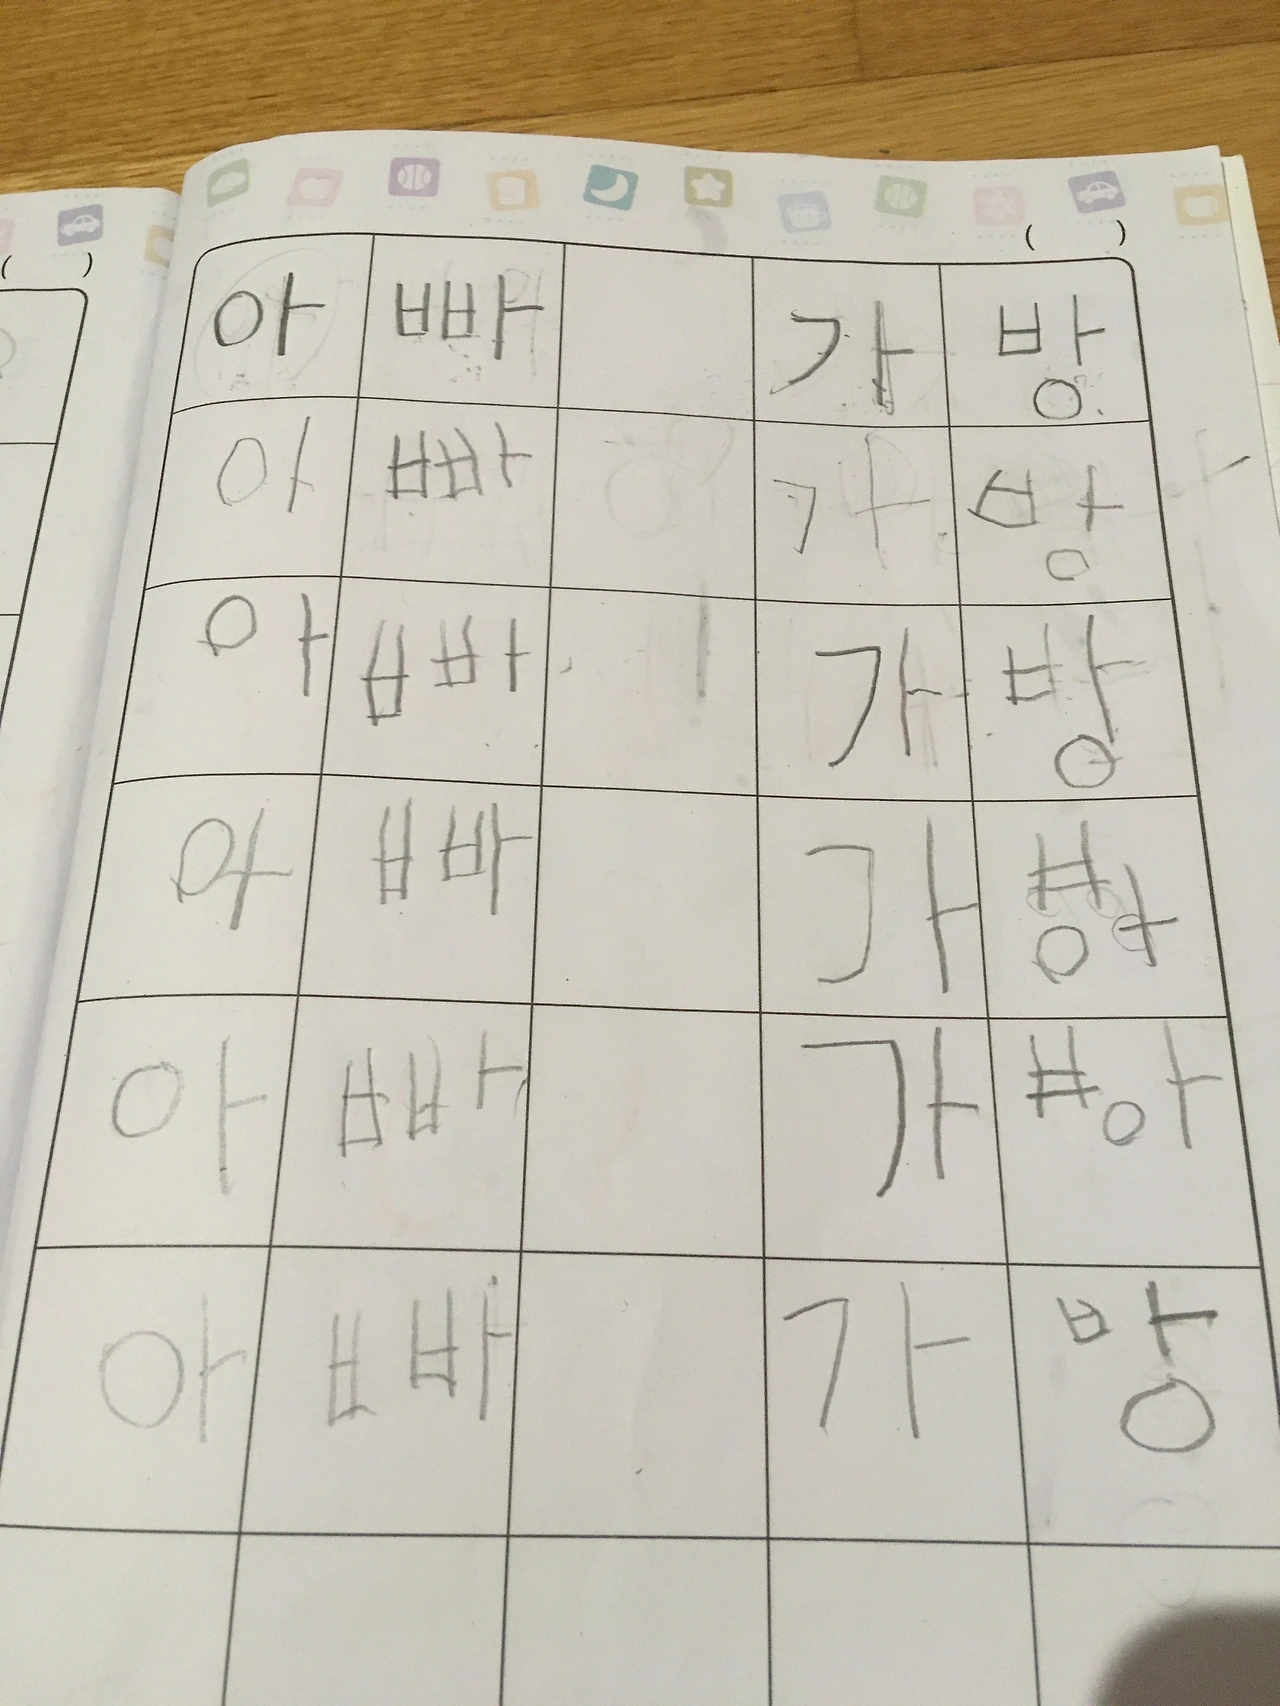 ( ) ( )
아빠 가방
아빠 가방
아빠 가방
아빠 가방
아빠 가방
아빠 가방